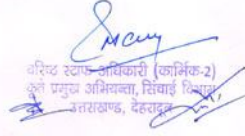 वरिष्ठ स्टाफ अधिकारी (कार्मिक-2)
कृते प्रमुख अभियन्ता, सिंचाई विभाग
उत्तराखण्ड, देहरादून